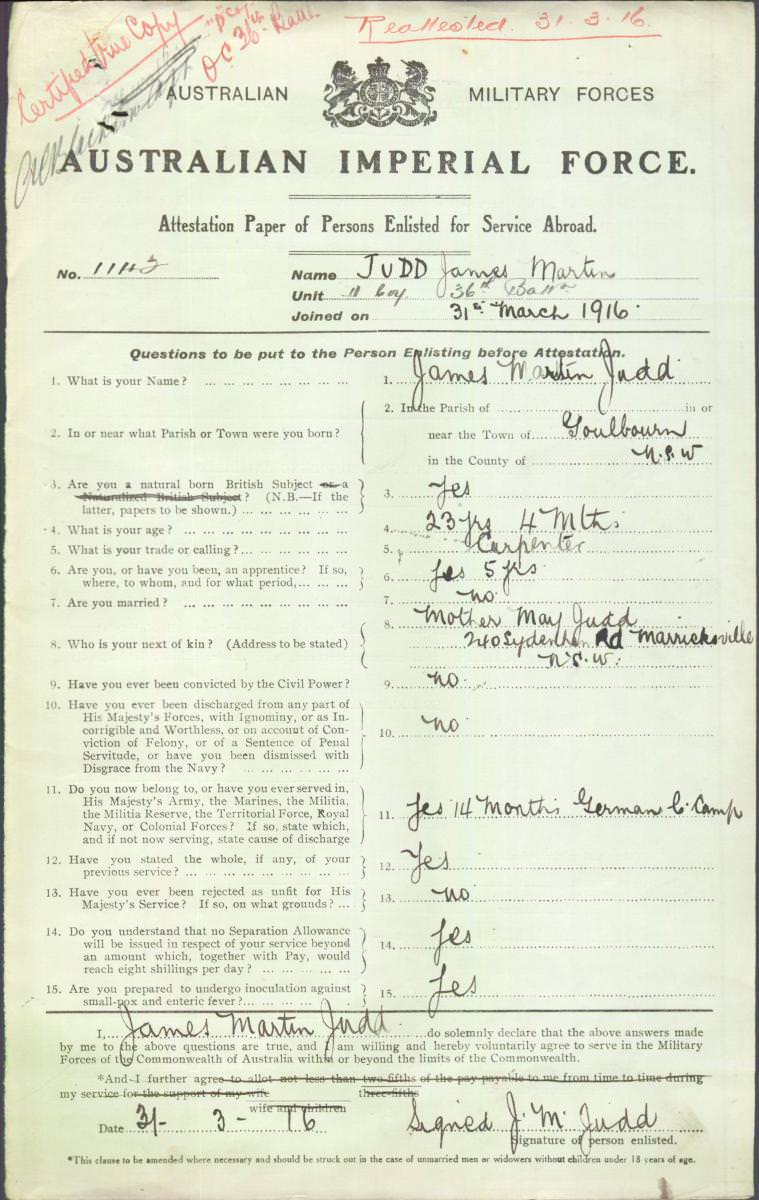 Certified true Copy
Reattested. 31.3.16.
OC 36th
AUSTRALIAN MILITARY FORCES
AUSTRALIAN IMPERIAL FORCE.
Attestation Paper of Persons Enlisted for Service Abroad.
No. 1142 Name JUDD James Martin
Unit Coy 36th Battn
Joined on 31st March 1916.
Questions to be put to the Person Enlisting before Attestation.
1. What is your Name? ... 1. James Martin Judd
2. In or near what Parish or Town were you born? 2. In the Parish of ... in or
near the Town of Goulbourn
in the County of N.S.W
3. Are you a natural born British Subject or a
Naturalized British Subject? (N.B.—If the
latter, papers to be shown.) ... 3. Yes
4. What is your age? ... 4. 23 yrs 4 Mths
5. What is your trade or calling? ... 5. Carpenter
6. Are you, or have you been, an apprentice? If so,
where, to whom, and for what period, ... 6. Yes 5 yrs
7. Are you married? ... 7. no
8. Who is your next of kin? (Address to be stated) 8. Mother May Judd
240 Sydenham Rd Marricksville
N.S.W.
9. Have you ever been convicted by the Civil Power? 9. no.
10. Have you ever been discharged from any part of
His Majesty's Forces, with Ignominy, or as In-
corrigible and Worthless, or on account of Con-
viction of Felony, or of a Sentence of Penal
Servitude, or have you been dismissed with
Disgrace from the Navy? ... 10. no
11. Do you now belong to, or have you ever served in,
His Majesty's Army, the Marines, the Militia,
the Militia Reserve, the Territorial Force, Royal
Navy, or Colonial Forces? If so, state which,
and if not now serving, state cause of discharge 11. Yes 14 Months German C. Camp
12. Have you stated the whole, if any, of your
previous service? ... 12. Yes
13. Have you ever been rejected as unfit for His
Majesty's Service? If so, on what grounds? ... 13. no
14. Do you understand that no Separation Allowance
will be issued in respect of your service beyond
an amount which, together with Pay, would
reach eight shillings per day? ... 14. Yes
15. Are you prepared to undergo inoculation against
small-pox and enteric fever? ... 15. Yes
I, James Martin Judd do solemnly declare that the above answers made
by me to the above questions are true, and I am willing and hereby voluntarily agree to serve in the Military
Forces of the Commonwealth of Australia within or beyond the limits of the Commonwealth.
*And I further agree to allot not less than two-fifths of the pay payable to me from time to time during
my service for the support of my wife three-fifths
wife and children
Date 31- 3- 16 Signed J. M. Judd
Signature of person enlisted.
*This clause to be amended where necessary and should be struck out in the case of unmarried men or widowers without children under 18 years of age.